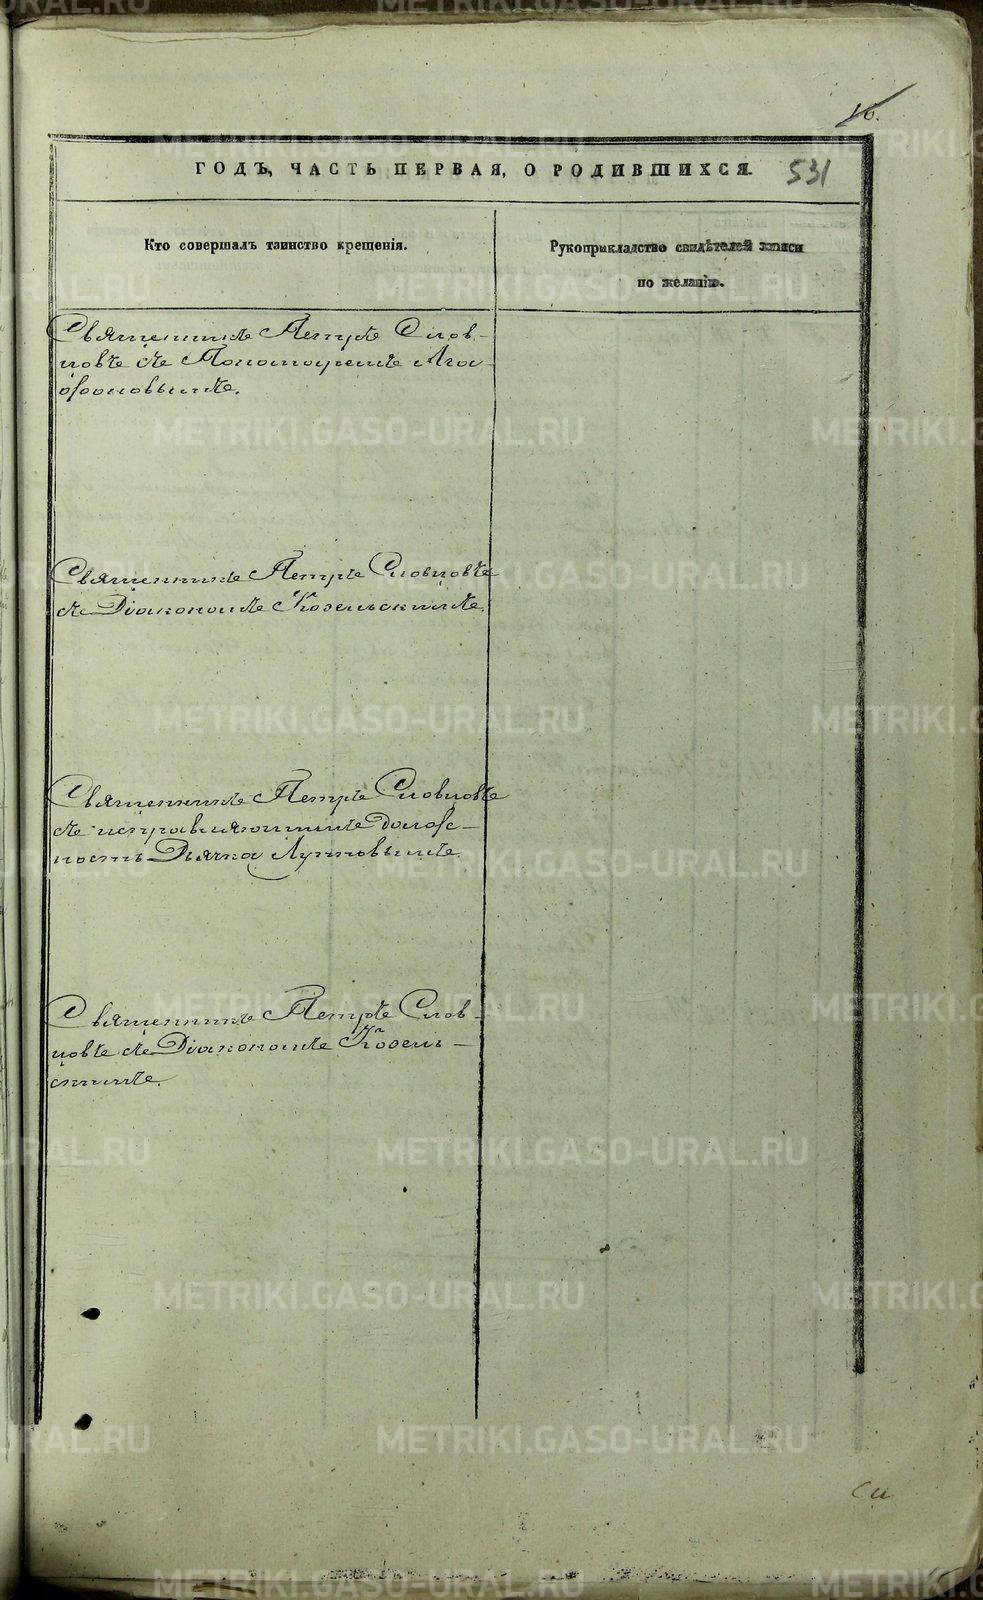 16.
ГОДЪ, ЧАСТЬ ПЕРВАЯ, О РОДИВШИХСЯ.
531
Кто совершалъ таинство крещенія.
Рукоприкладство свидѣтелей записи
по желанію.
Священникъ Петръ Слов-
цовъ съ Пономаремъ Ага-
фоновымъ.
Священникъ Петръ Словцовъ
съ Діакономъ Козельскимъ.
Священникъ Петръ Словцовъ
съ исправляющимъ долж-
ность Дьячка Луповымъ.
Священникъ Петръ Слов-
цовъ съ Діакономъ Козель-
скимъ.
METRIKI.GASO-URAL.RU